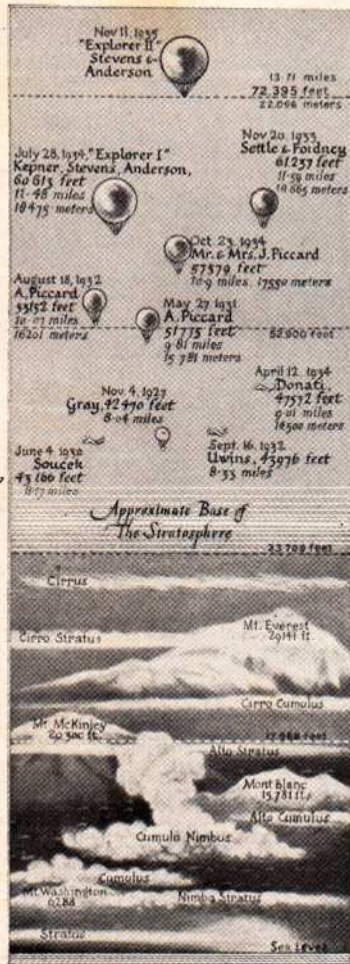 Nov 11, 1935
"Explorer II"
Stevens &
Anderson
13.71 miles
72,395 feet
22,066 meters
Nov 20, 1933
Settle & Fordney
61237 feet
11.59 miles
18665 meters
July 28, 1934, "Explorer I"
Kepner, Stevens, Anderson,
60 613 feet
11.48 miles
18475 meters
Oct 23, 1934
Mr. & Mrs. J. Piccard
57579 feet
10.9 miles, 17550 meters
August 18, 1932
A. Piccard
53152 feet
10.07 miles
16201 meters
May 27 1931
A. Piccard
51775 feet
9.81 miles
15 781 meters
52,800 feet
April 12, 1934
Donati,
47572 feet
9.01 miles
14500 meters
Nov. 4, 1927
Gray, 42470 feet
8.04 miles
Sept. 16, 1932
Uwins, 43976 feet
8.33 miles
June 4, 1930
Soucek
43166 feet
8.17 miles
Approximate Base of
The Stratosphere
feet
Cirrus
Mt. Everest
29141 ft.
Cirro Stratus
Cirro Cumulus
Mt. McKinley
20,300 ft.
feet
Alto Stratus
Mont blanc
15,781 ft.
Alto Cumulus
Cumulo Nimbus
Cumulus
Mt. Washington
6288
Nimbo Stratus
Stratus
Sea Level